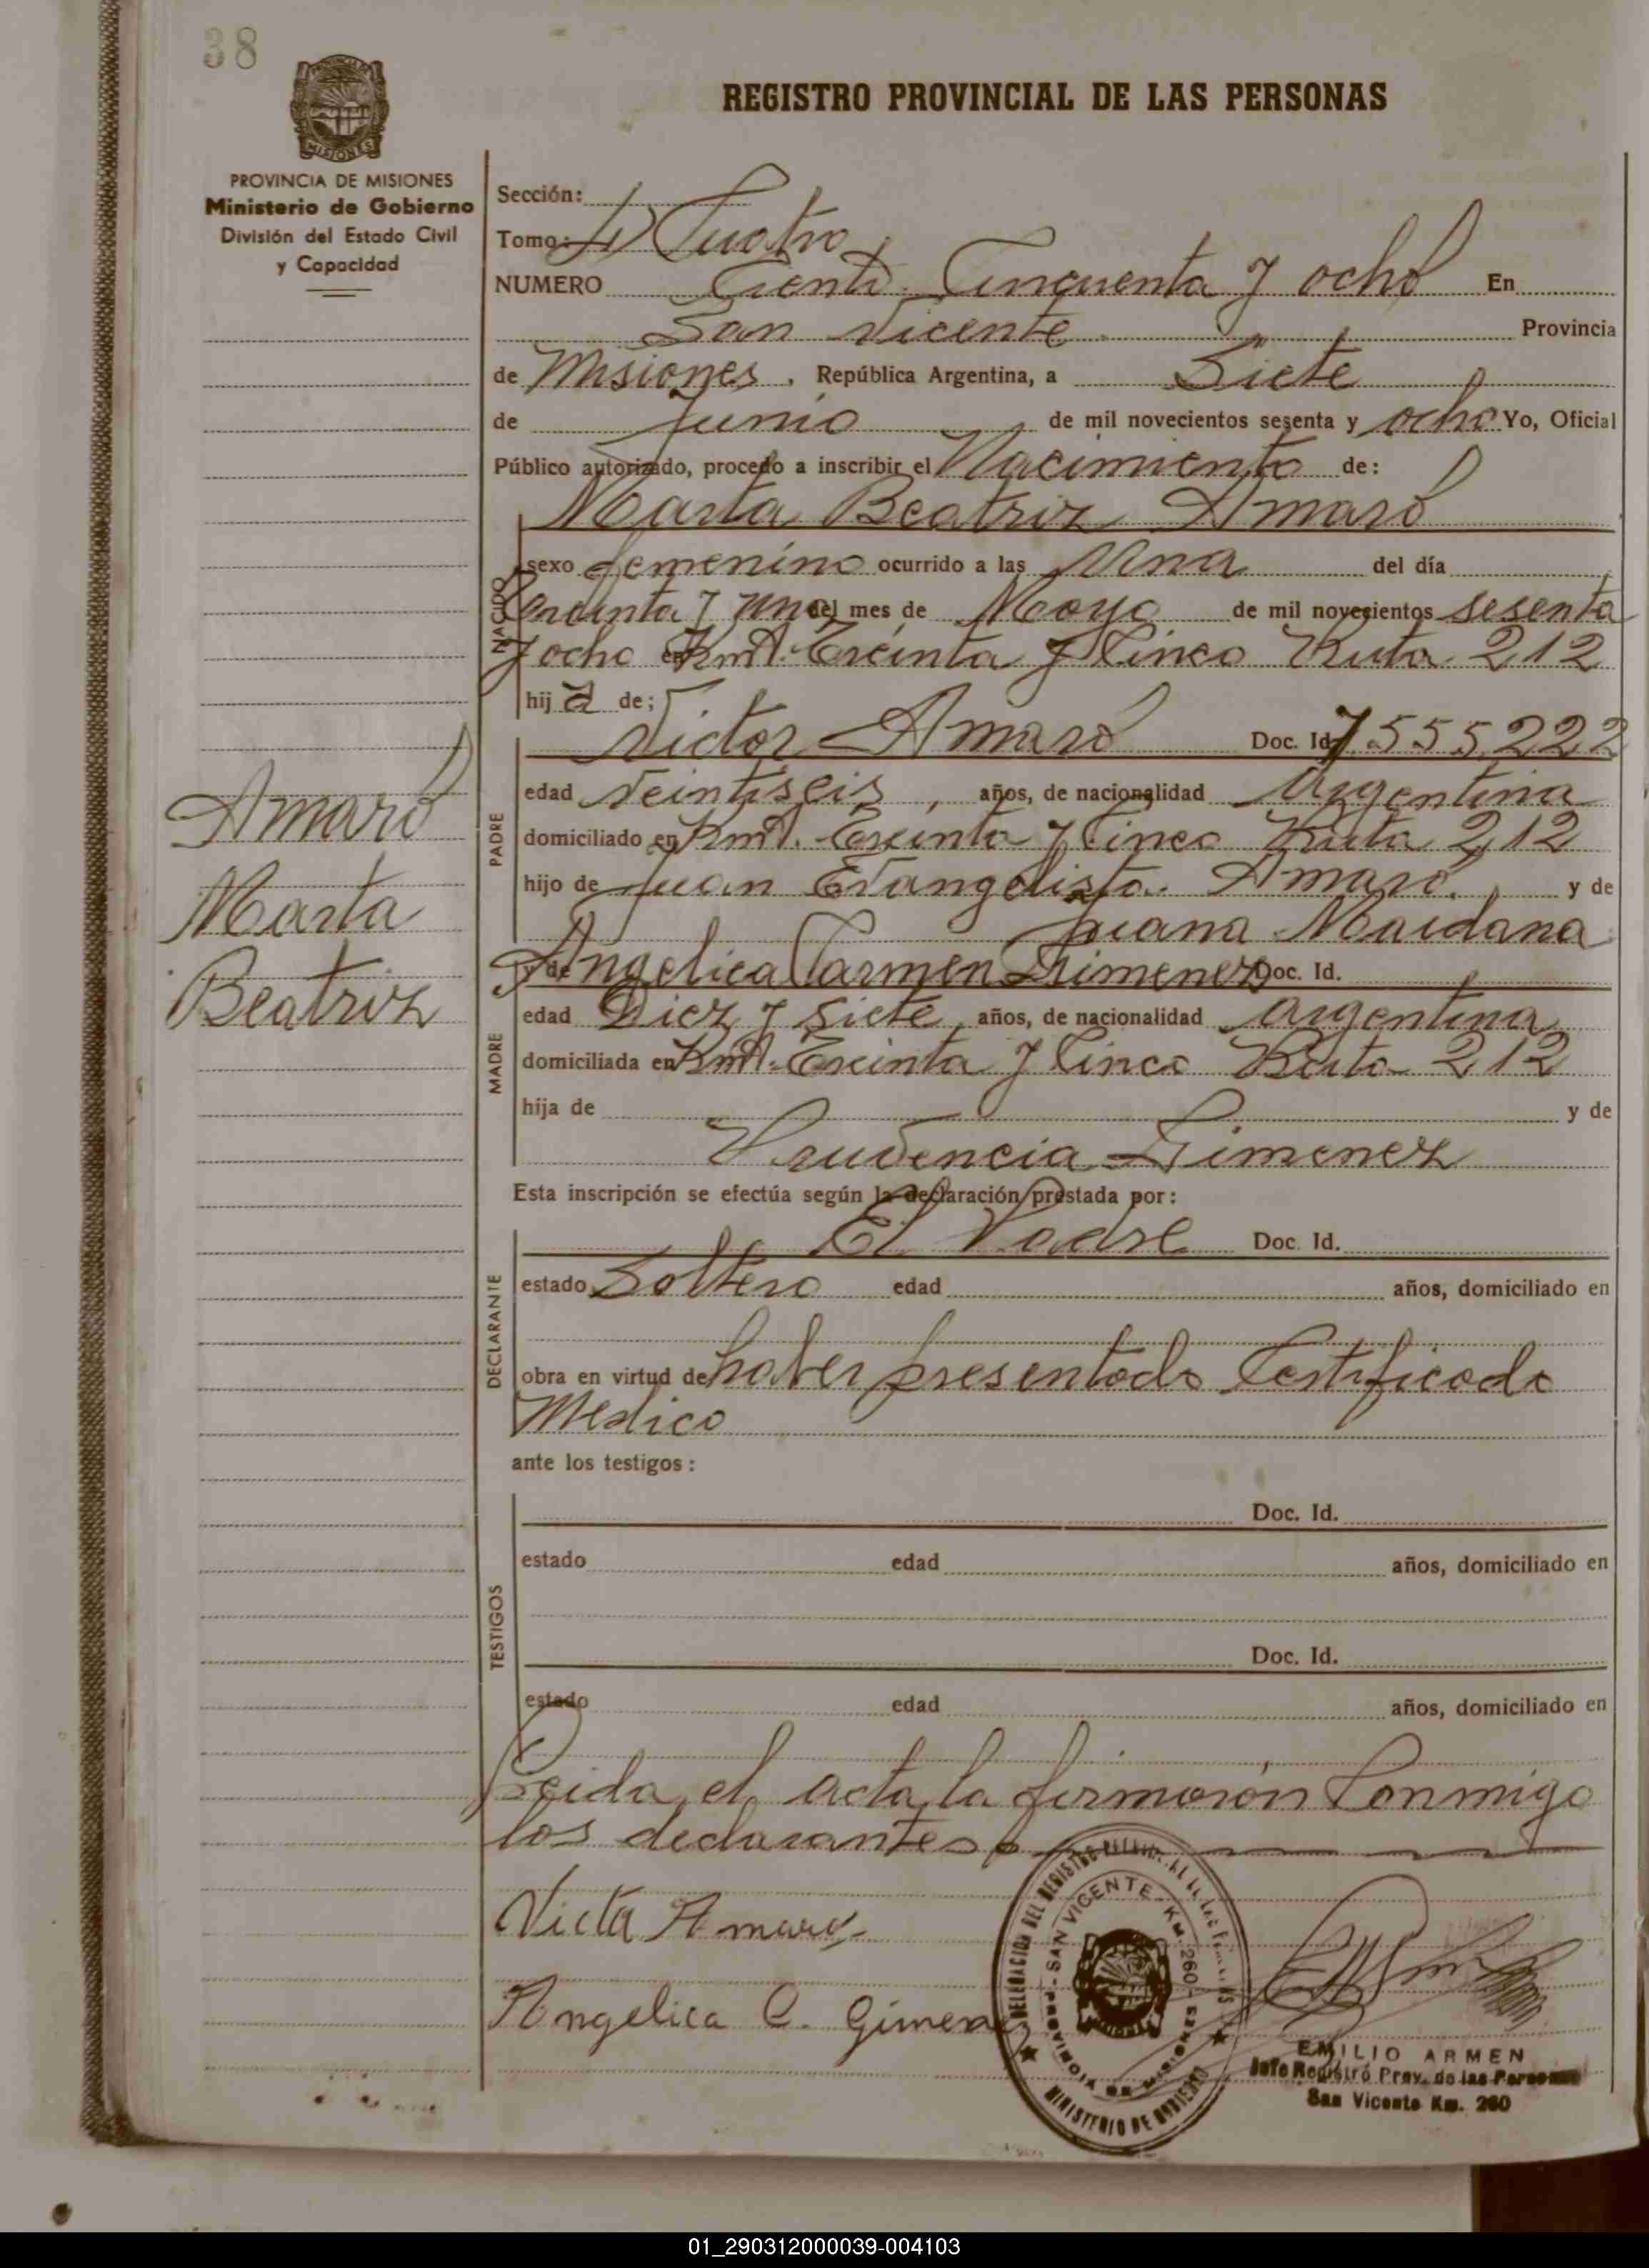 38
REGISTRO PROVINCIAL DE LAS PERSONAS
PROVINCIA DE MISIONES
Ministerio de Gobierno
División del Estado Civil
y Capacidad
Sección:
Tomo: 4) Cuatro
NUMERO Ciento Cincuenta y ocho En
San Vicente Provincia
de Misiones, República Argentina, a Siete
de Junio de mil novecientos sesenta y ocho Yo, Oficial
Público autorizado, procedo a inscribir el Nacimiento de:
Marta Beatriz Amaro
NACIDO
sexo femenino ocurrido a las Una del día
treinta y uno del mes de Mayo de mil novecientos sesenta
y ocho en Kmt. Treinta y Cinco Ruta 212
hij a de;
Victor Amaro Doc. Id. 7.555.222
PADRE
edad Veintiseis, años, de nacionalidad Argentina
domiciliado en Kmt. Treinta y Cinco Ruta 212
hijo de Juan Evangelista Amaro, y de
Juana Maidana
Amaro
Marta
Beatriz
y de Angelica Carmen Gimenez Doc. Id.
MADRE
edad Diez y siete, años, de nacionalidad Argentina
domiciliada en Kmt. Treinta y Cinco Ruta 212
hija de y de
Prudencia Gimenez
Esta inscripción se efectúa según la declaración prestada por:
El Padre Doc. Id.
DECLARANTE
estado Soltero edad años, domiciliado en
obra en virtud de haber presentado Certificado
Medico
ante los testigos:
TESTIGOS
Doc. Id.
estado edad años, domiciliado en
Doc. Id.
estado edad años, domiciliado en
Leida el acta la firmarón Conmigo
los declarantes
Victor Amaro
Angelica C. Gimenez
DELEGACION DEL REGISTRO
SAN VICENTE - Km. 260
PROVINCIA DE MISIONES
MINISTERIO DE GOBIERNO
EMILIO ARMEN
Jefe Registro Prov. de las Personas
San Vicente Km. 260
01_290312000039-004103